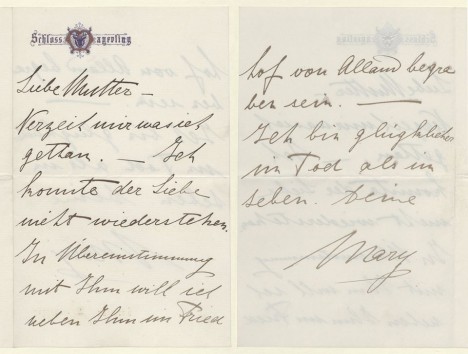 Schloss Mayerling
Liebe Mutter –
Verzeih mir was ich
gethan. – Ich
konnte der Liebe
nicht wiederstehen.
In Übereinstimmung
mit Ihm will ich
neben Ihm im Fried
hof von Alland begra
ben sein. —
Ich bin glücklicher
im Tod als im
Leben. Deine
Mary